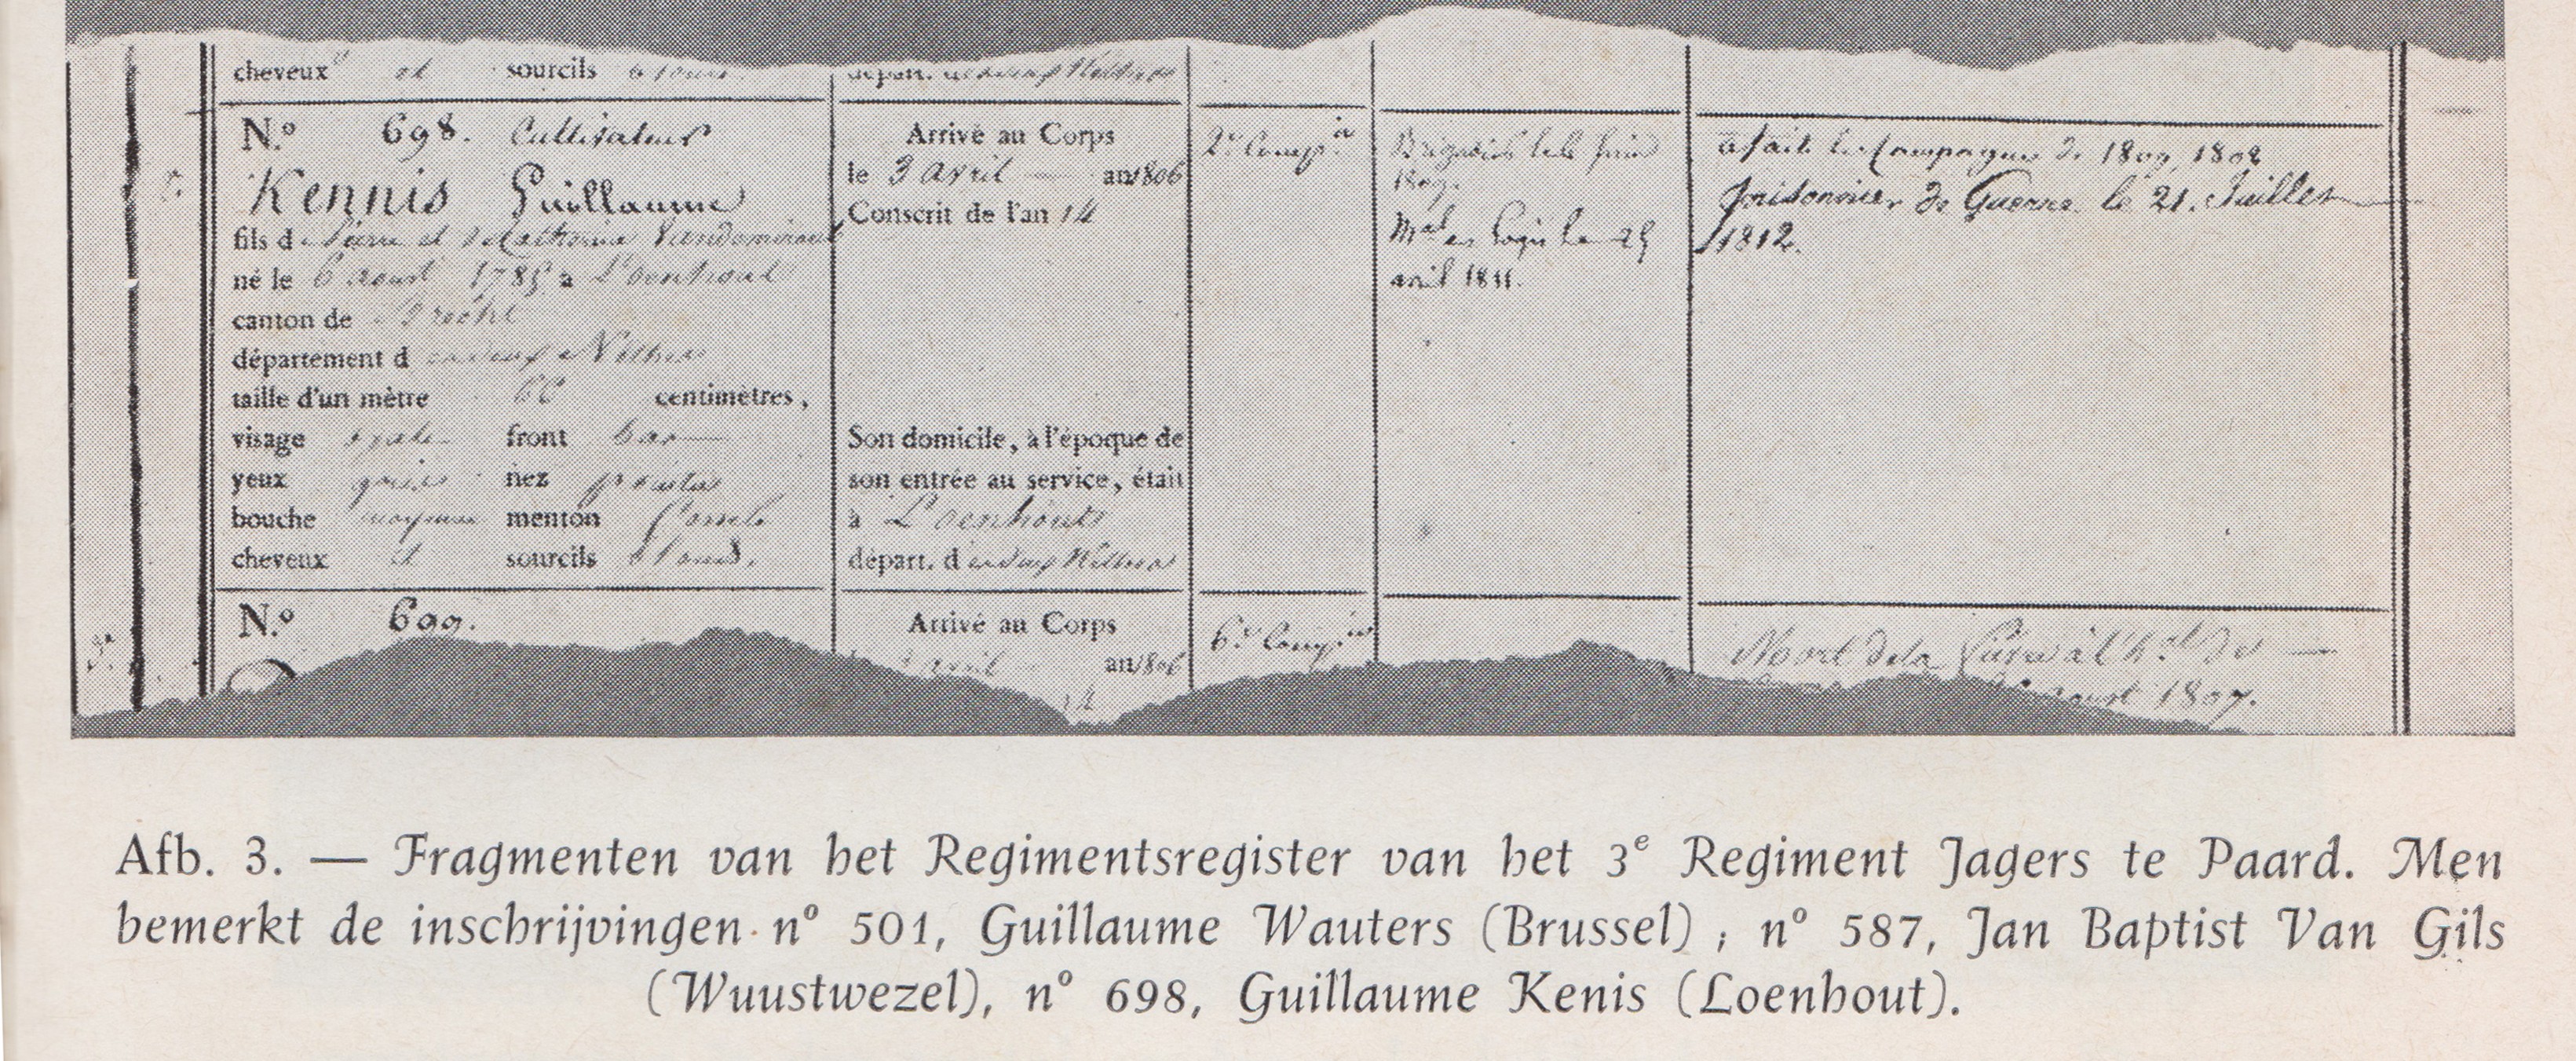 cheveux et sourcils blonds
départ. des deux Nethes
N.º 698. Cultivateur
Kennis Guillaume
fils de Pierre et de Catherina
né le 6 aoust 1785 à Loenhout
canton de Brecht
département des deux Nethes
taille d'un mètre 66 centimètres,
visage ovale front bas
yeux gris nez pointu
bouche moyenne menton
cheveux et sourcils blonds.
Arrivé au Corps
le 3 avril an 1806
Conscrit de l'an 14
Son domicile, à l'époque de
son entrée au service, était
à Loenhout
départ. des deux Nethes
2e Comp.ie
Brigadier le
1807.
Mal es Logis le 25
avril 1811.
a fait les Campagnes de 1807, 1808
prisonnier de Guerre le 21. Juillet
1812.
N.º 699.
Arrivé au Corps
avril an 1806
14
6e Comp.ie
Mort de la fièvre à l'h.al de
aoust 1807.
Afb. 3. — Fragmenten van het Regimentsregister van het 3e Regiment Jagers te Paard. Men
bemerkt de inschrijvingen nº 501, Guillaume Wauters (Brussel) ; nº 587, Jan Baptist Van Gils
(Wuustwezel), nº 698, Guillaume Kenis (Loenhout).